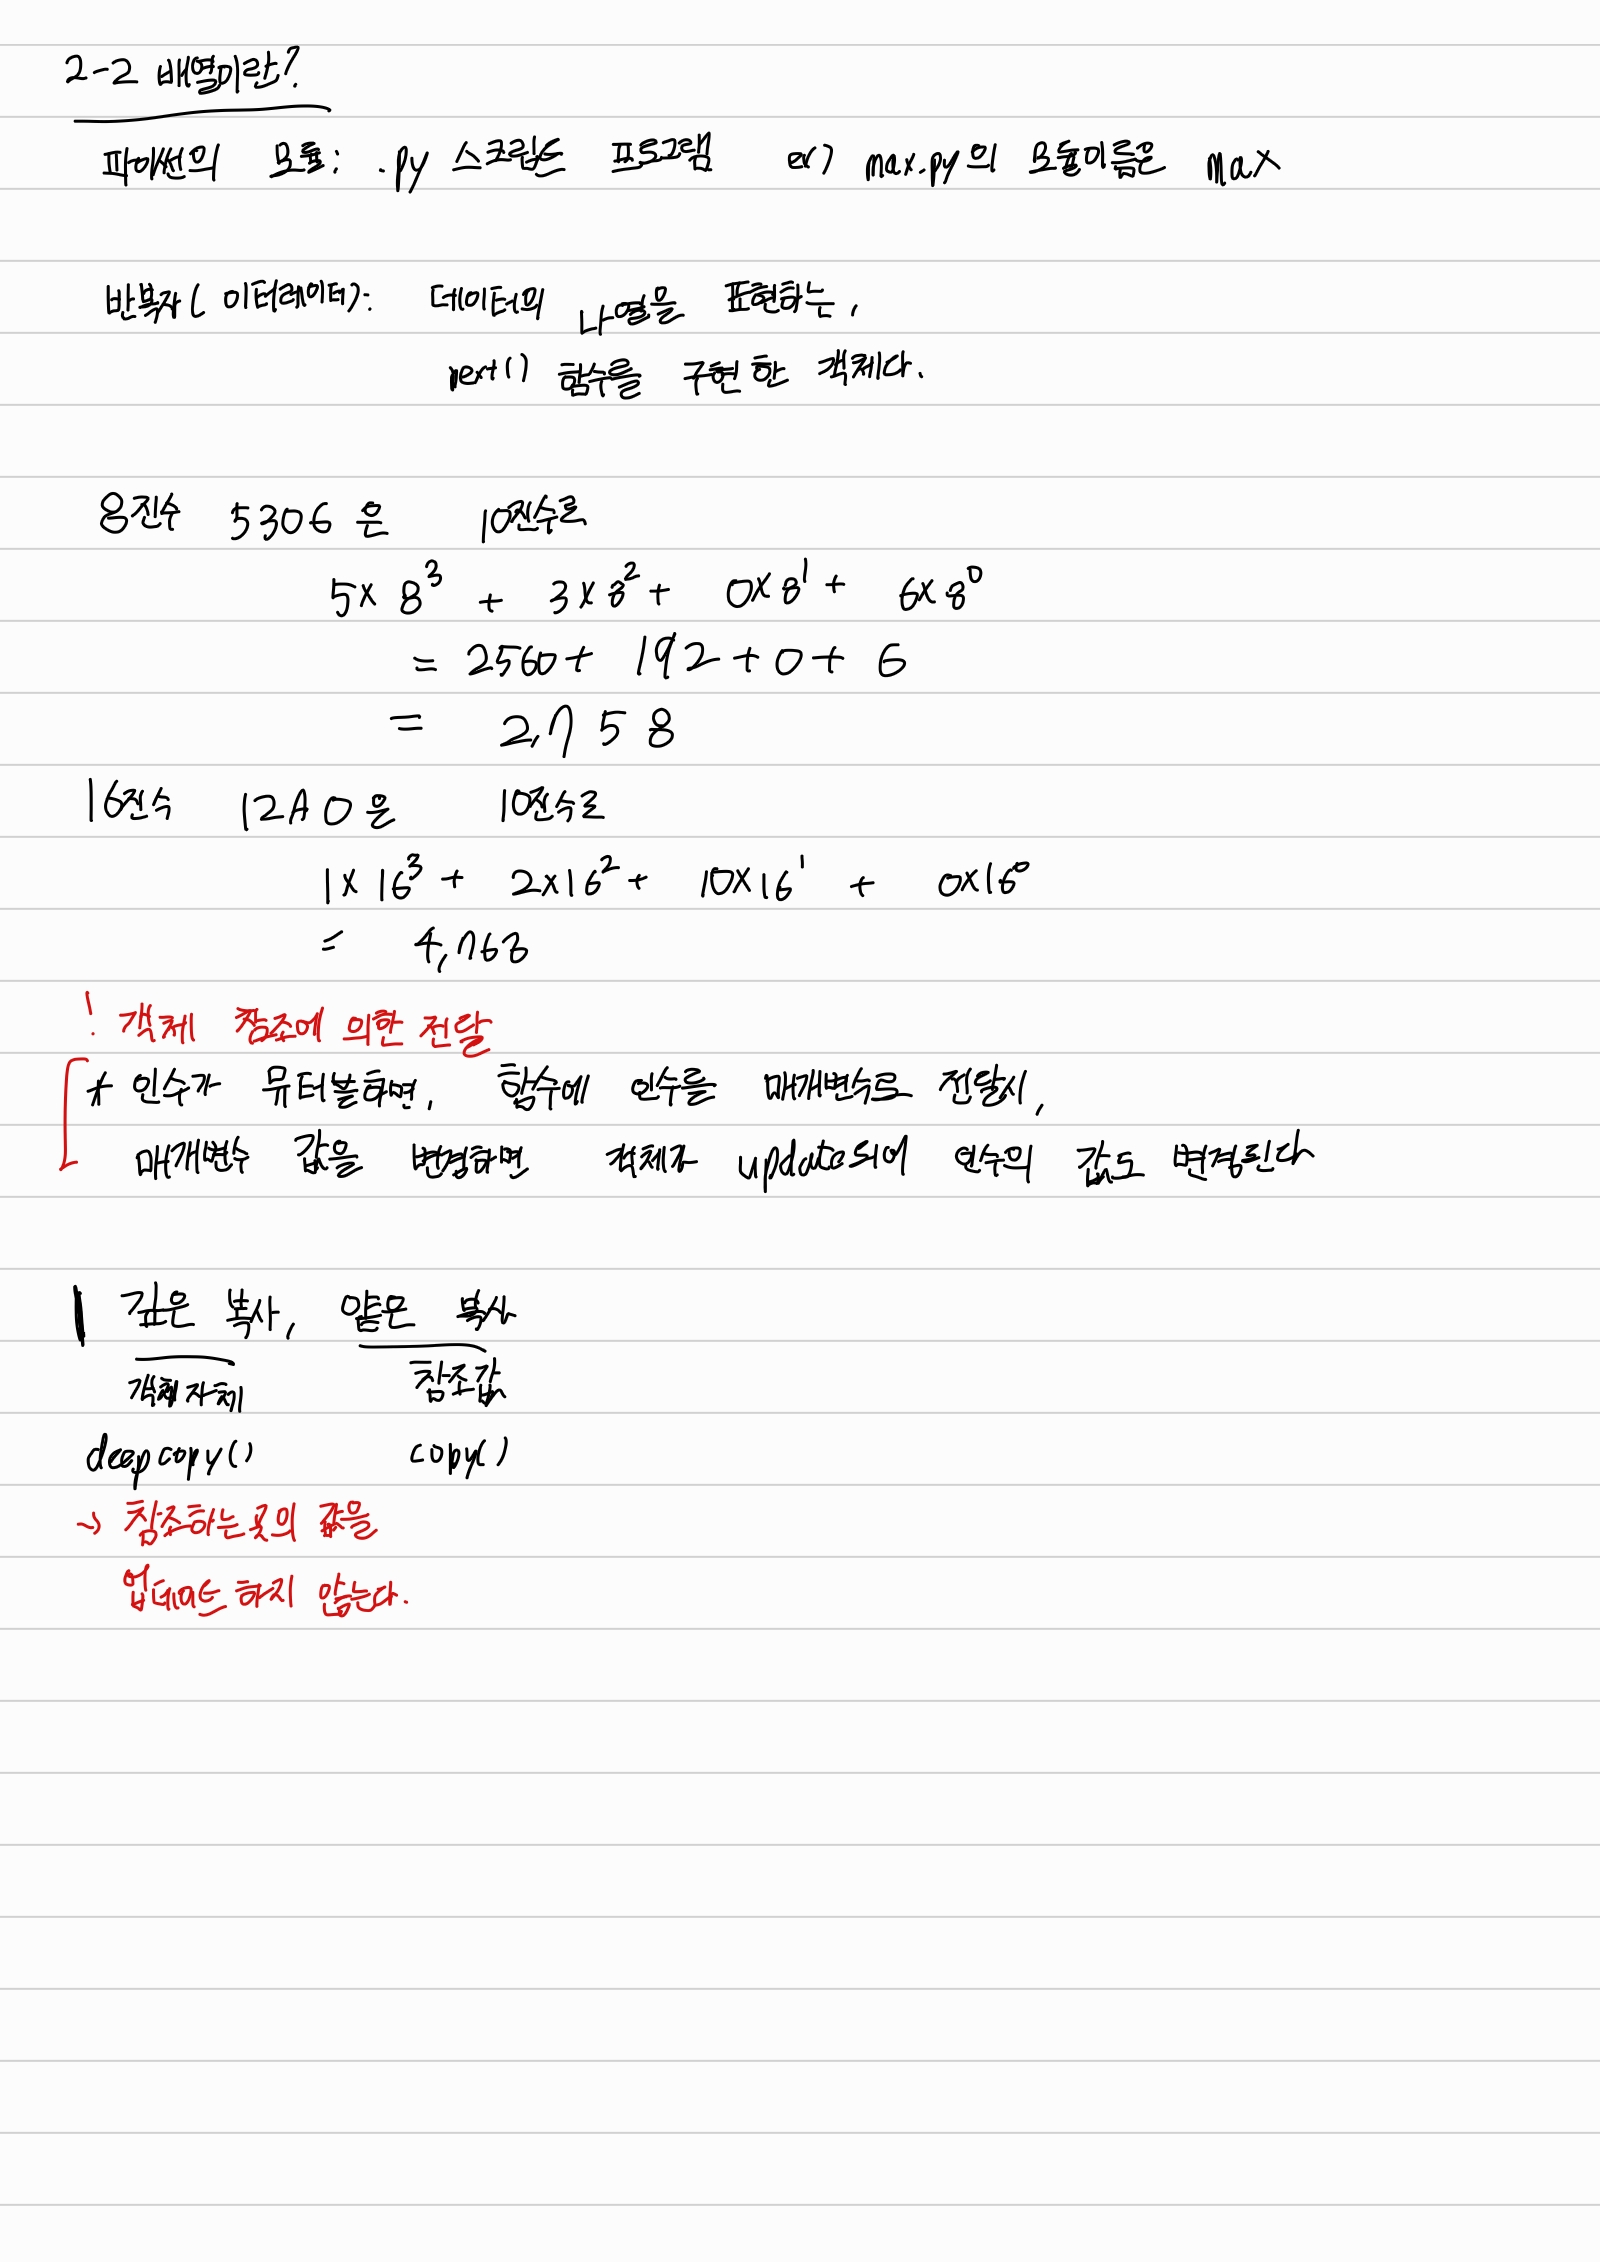 2-2 배열이란?
파이썬의 모듈: .py 스크립트 프로그램 ex) max.py의 모듈이름은 max
반복자(이터레이터): 데이터의 나열을 표현하는,
next() 함수를 구현한 객체다.
8진수 5306은 10진수로
5×8³ + 3×8² + 0×8¹ + 6×8⁰
= 2560 + 192 + 0 + 6
= 2,758
16진수 12A0은 10진수로
1×16³ + 2×16² + 10×16¹ + 0×16⁰
= 4,768
! 객체 참조에 의한 전달
* 인수가 뮤터블하면, 함수에 인수를 매개변수로 전달시,
매개변수 값을 변경하면 객체가 update되어 인수의 값도 변경된다
깊은 복사, 얕은 복사
객체 자체 참조값
deepcopy() copy()
→ 참조하는 곳의 값을
업데이트 하지 않는다.